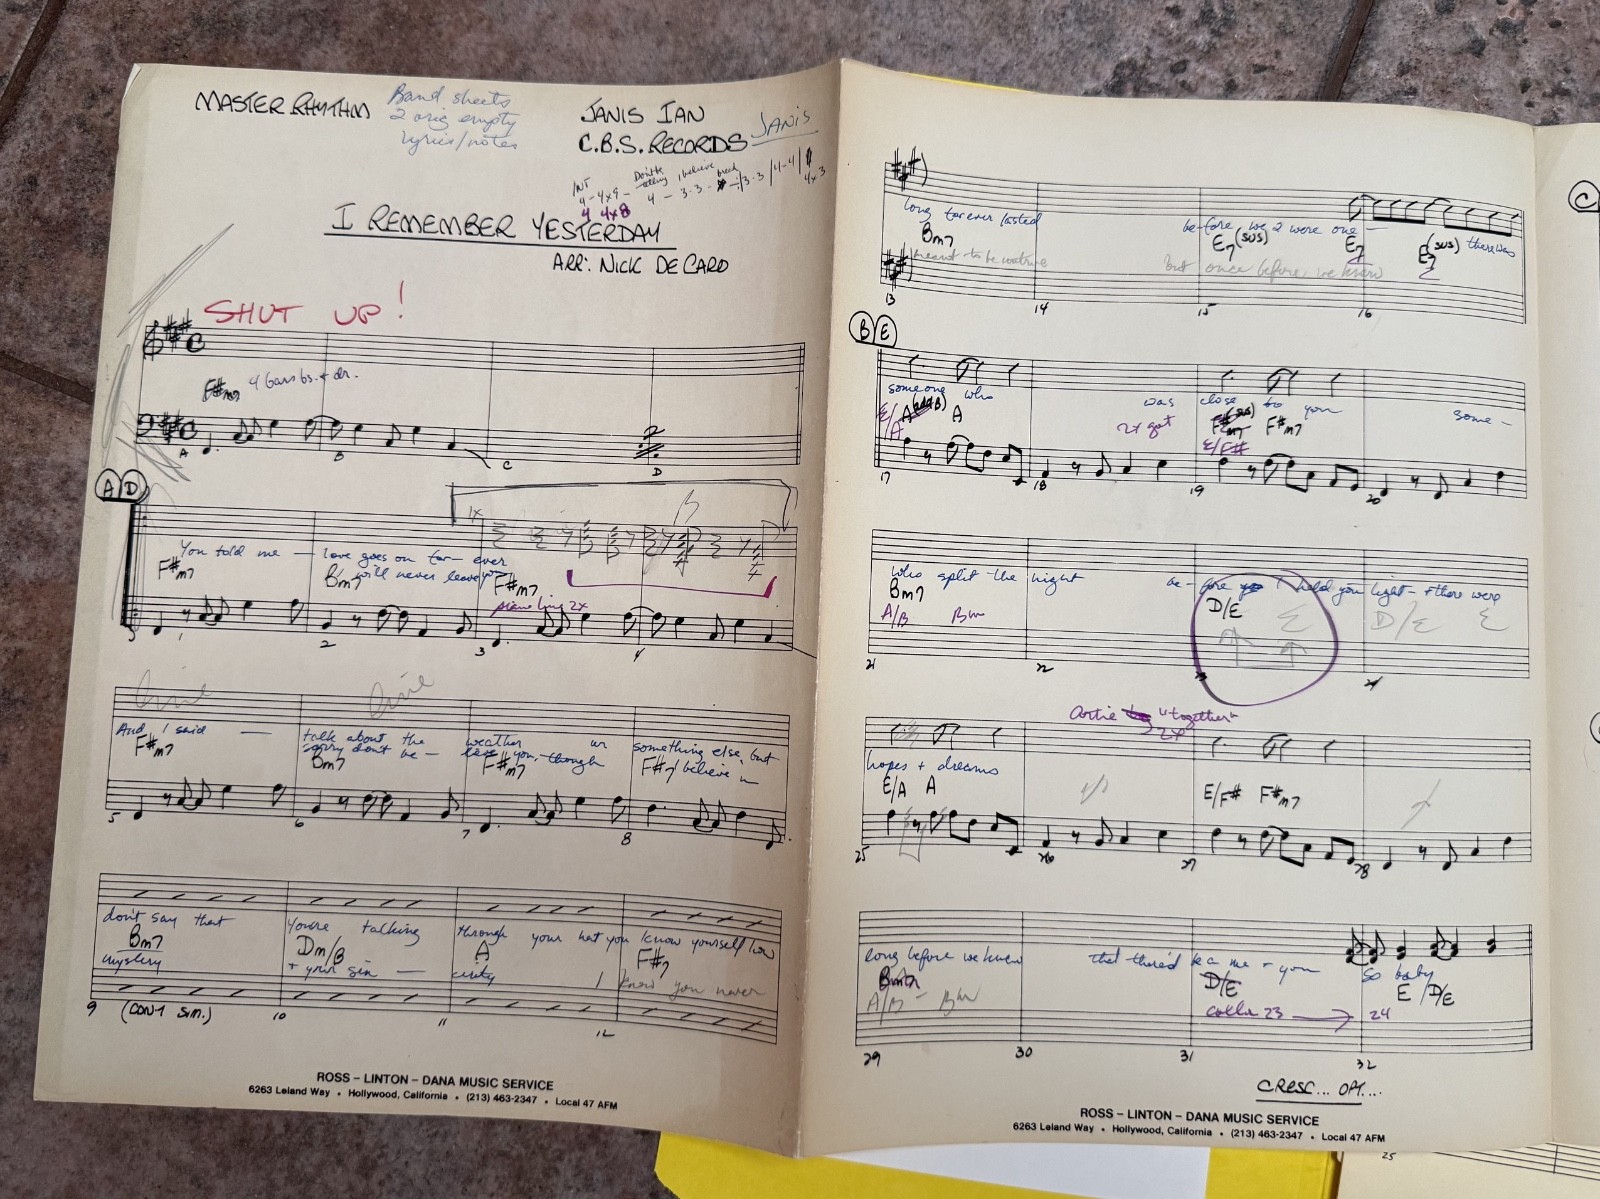 MASTER RHYTHM
Band sheets
2 orig empty
lyrics/notes
JANIS IAN
C.B.S. RECORDS
JANIS
INT
4 - 4x9 -
4 4x8
I believe
I REMEMBER YESTERDAY
ARR: NICK DECARO
SHUT UP!
F#m7 4 bars bs. + dr.
A B C D
2
A D
1x
You told me — love goes on for-ever
will never leave you
F#m7 Bm7 F#m7
piano line 2x
1 2 3 4
And I said — talk about the weather or something else, but
sorry don't be - you, though I believe in
F#m7 Bm7 F#m7 F#7
5 6 7 8
don't say that you're talking through your hat you know yourself how
Bm7 Dm/B A F#7
mystery + your sin — cerity I know you never
9 (CON'T SIM.) 10 11 12
ROSS – LINTON – DANA MUSIC SERVICE
6263 Leland Way • Hollywood, California • (213) 463-2347 • Local 47 AFM
long forever lasted before we 2 were one — there was
Bm7 E7(sus) E7 E7(sus)
meant to be but once before we knew
13 14 15 16
B E
someone who was close to you some-
E/A A(add B) A 2x gat F#m7(sus) F#m7
E/F#
17 18 19 20
who split the night be-fore I held you tight - + there were
Bm7 D/E E D/E E
A/B Bm
21 22 23 24
Artie "together"
2x
hopes + dreams
E/A A E/F# F#m7
25 26 27 28
long before we knew that there'd be a me + you so baby
Bm7 D/E E /D/E
A/B - Bm colla 23 → 24
29 30 31 32
CRESC... OPT...
ROSS – LINTON – DANA MUSIC SERVICE
6263 Leland Way • Hollywood, California • (213) 463-2347 • Local 47 AFM
C
25